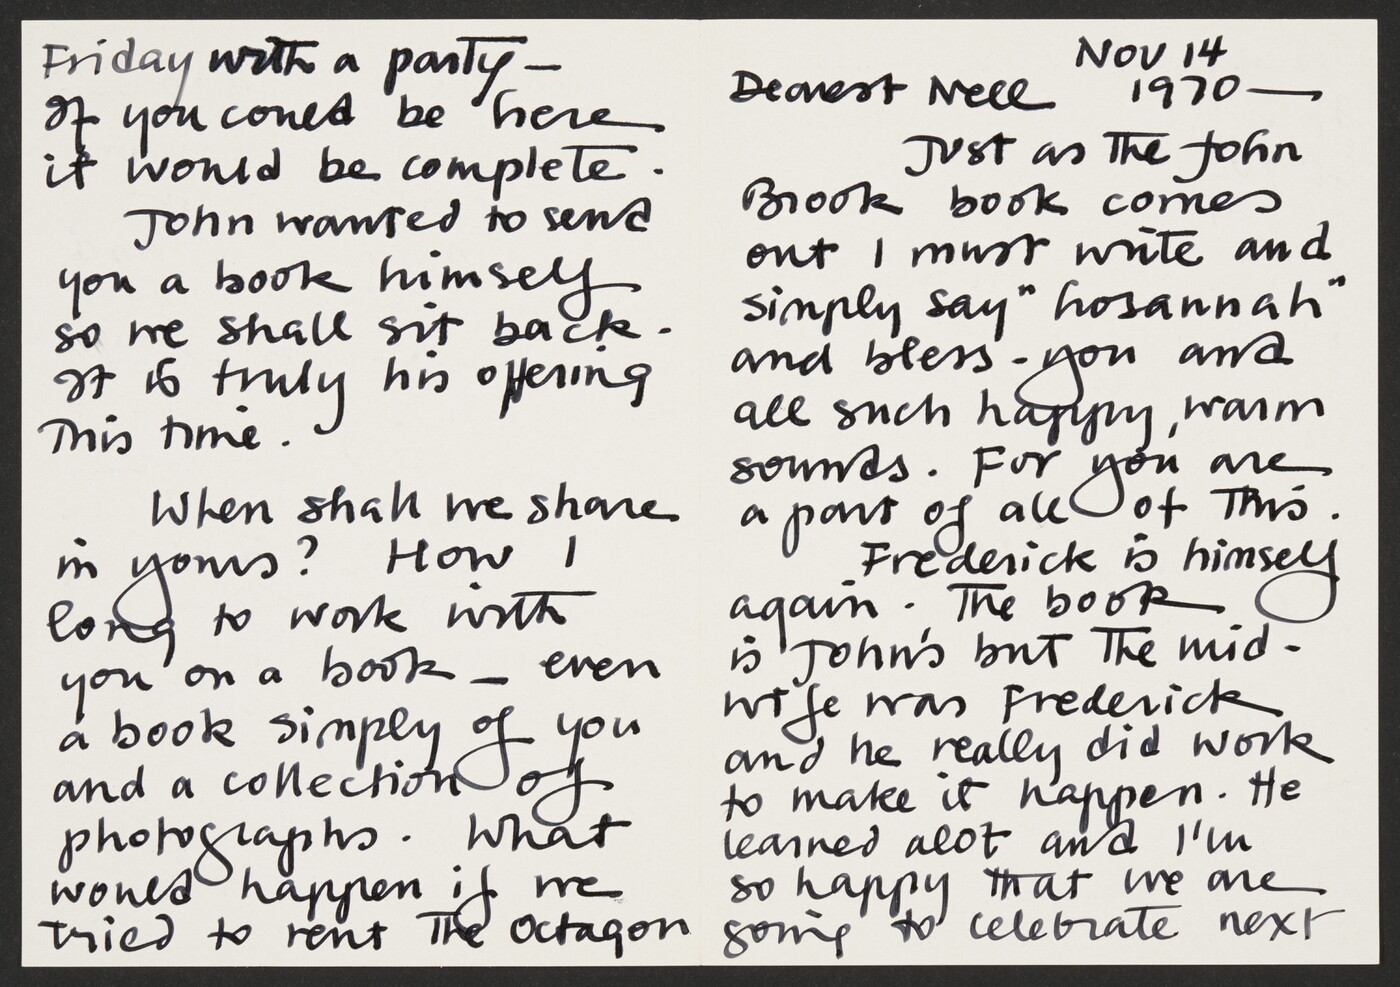 Nov 14
Dearest Nell 1970 —
Just as the John
Brook book comes
out I must write and
simply say "hosannah"
and bless - you and
all such happy, warm
sounds. For you are
a part of all of this.
Frederick is himself
again. The book
is John's but the mid-
wife was Frederick
and he really did work
to make it happen. He
learned alot and I'm
so happy that we are
going to celebrate next
Friday with a party —
If you could be here
it would be complete.
John wanted to send
you a book himself
so we shall sit back.
It is truly his offering
This time.
When shall we share
in yours? How I
long to work with
you on a book — even
a book simply of you
and a collection of
photographs. What
would happen if we
tried to rent The Octagon